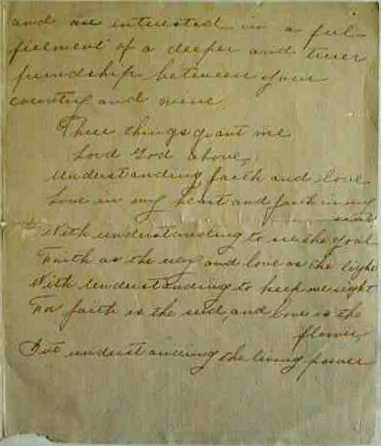 and are interested in a ful-
filment of a deeper and truer
friendship between your
country and mine.
These things grant me
Lord God above,
Understanding faith and love
Love in my heart and faith in my
soul
With understanding to see the goal
Faith as the way and love as the light
With understanding to keep me right
For faith is the seed, and love is the
flower,
But understanding the living power